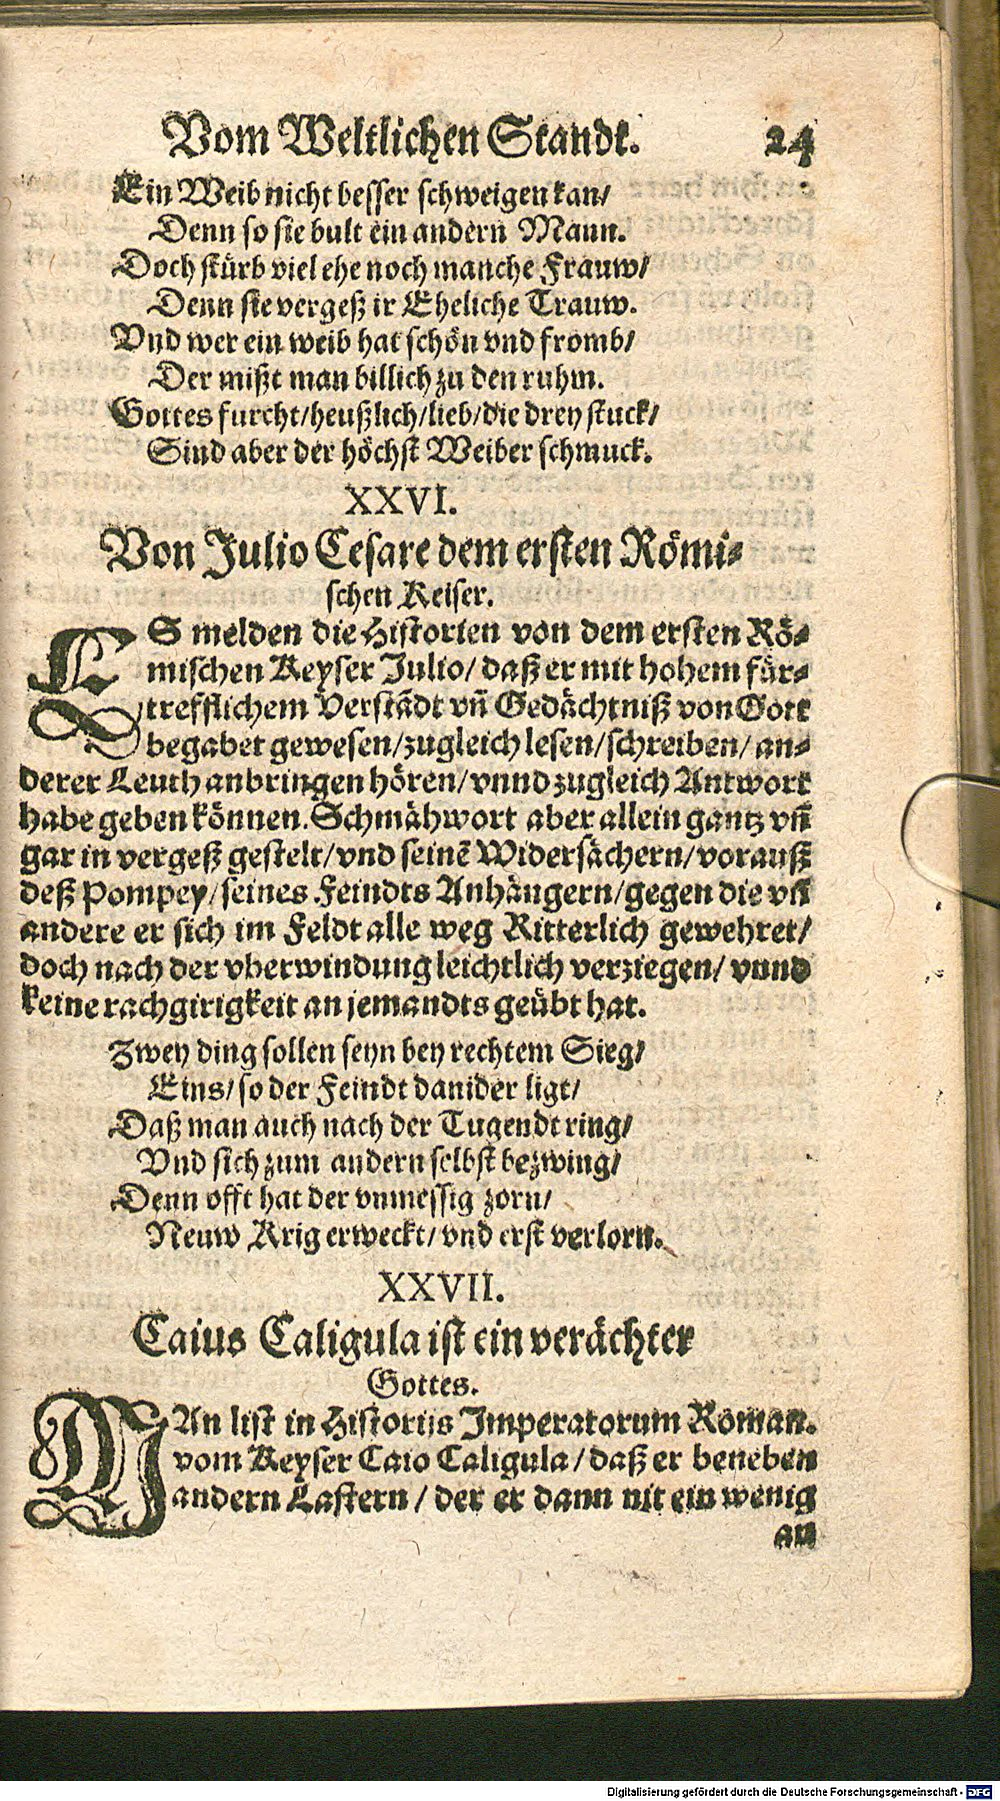 Vom Weltlichen Standt. 24
Ein Weib nicht besser schweigen kan/
Denn so sie bult ein andern Mann.
Doch stürb viel ehe noch manche Frauw/
Denn sie vergeß ir Eheliche Trauw.
Vnd wer ein weib hat schön vnd fromb/
Der mißt man billich zu den ruhm.
Gottes furcht/heußlich/lieb/die drey stuck/
Sind aber der höchst Weiber schmuck.
XXVI.
Von Julio Cesare dem ersten Römi⸗
schen Keiser.
ES melden die Historien von dem ersten Rö⸗
mischen Keyser Julio/ daß er mit hohem für⸗
trefflichem Verstãdt vñ Gedächtniß von Gott
begabet gewesen/zugleich lesen/schreiben/ an⸗
derer Leuth anbringen hören/ vnnd zugleich Antwort
habe geben können. Schmähwort aber allein gantz vñ
gar in vergeß gestelt/vnd seinẽ Widersächern/vorauß
deß Pompey/seines Feindts Anhängern/gegen die vñ
andere er sich im Feldt alle weg Ritterlich gewehret/
doch nach der vberwindung leichtlich verziegen/ vnnd
keine rachgirigkeit an jemandts geübt hat.
Zwey ding sollen seyn bey rechtem Sieg/
Eins/so der Feindt danider ligt/
Daß man auch nach der Tugendt ring/
Vnd sich zum andern selbst bezwing/
Denn offt hat der vnmessig zorn/
Neuw Krig erweckt/ vnd erst verlorn.
XXVII.
Caius Caligula ist ein verächter
Gottes.
MAn list in Historijs Imperatorum Roman.
vom Keyser Caio Caligula/daß er beneben
andern Lastern/ der er dann nit ein wenig
an
Digitalisierung gefördert durch die Deutsche Forschungsgemeinschaft - DFG